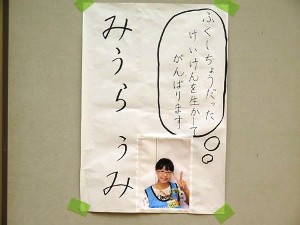 ふくしちょうだった
けいけんを生かして
がんばります
みうら うみ